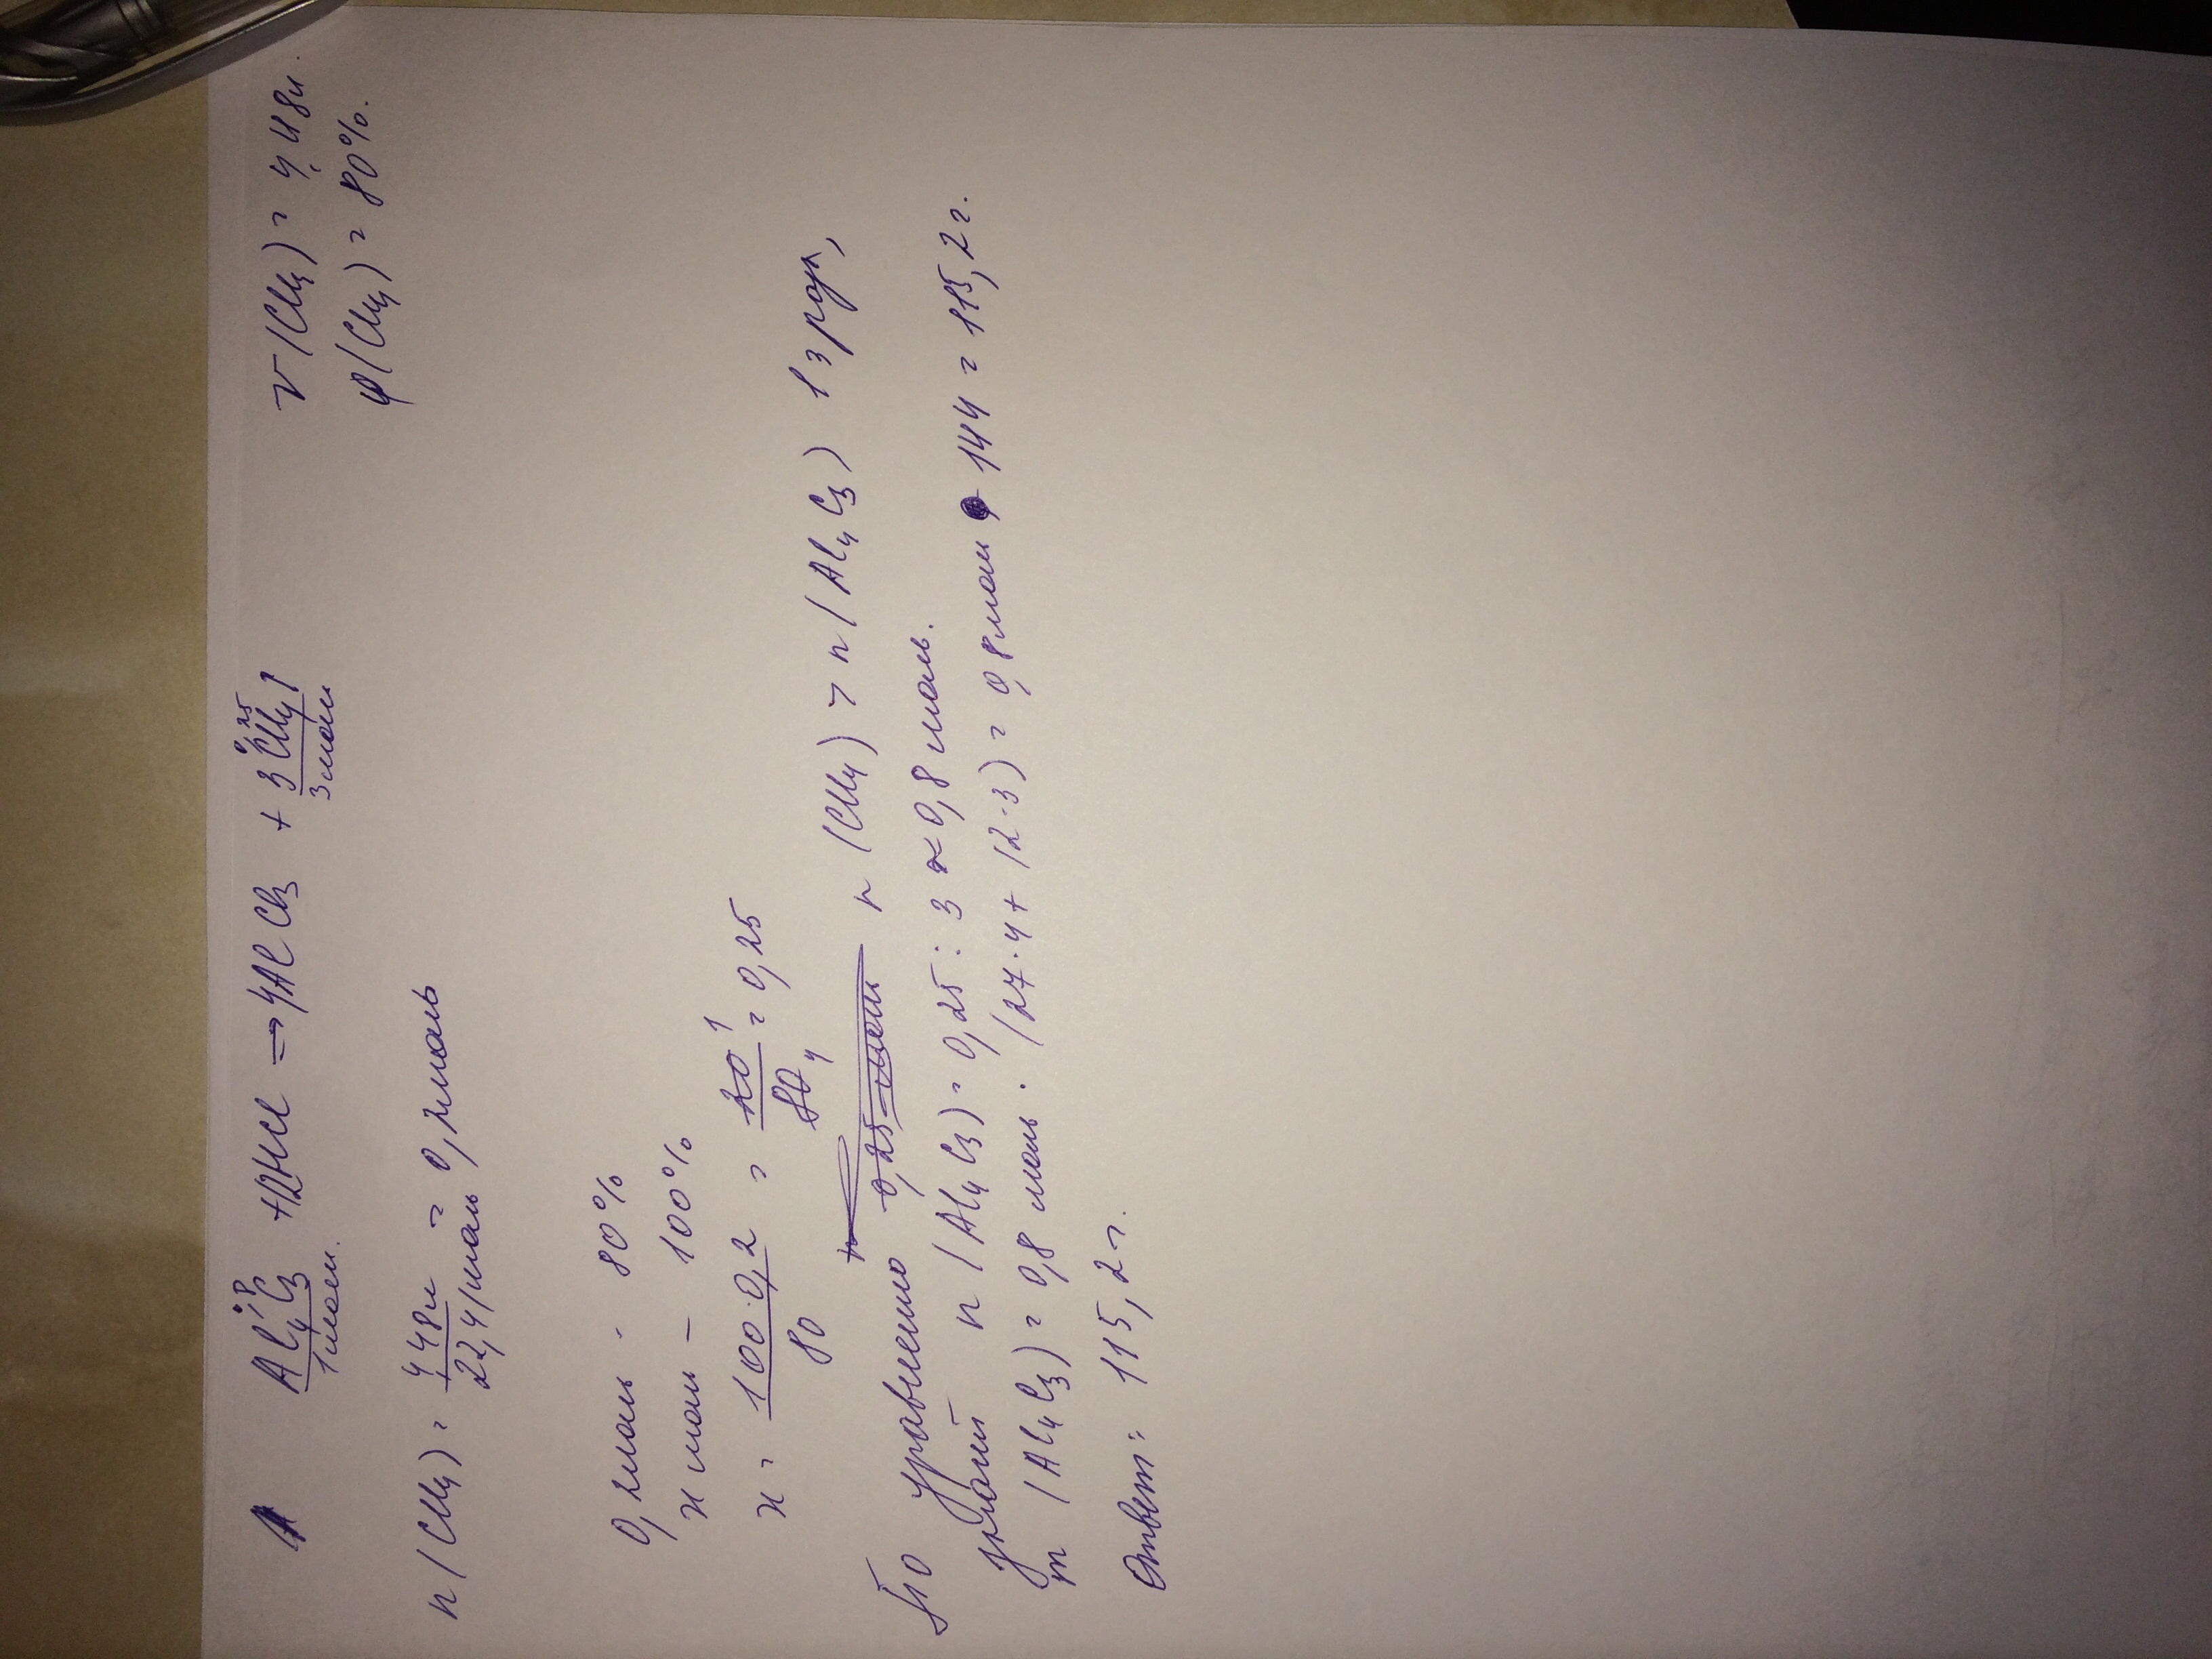 Al₄C₃ + 12HCl → 4AlCl₃ + 3CH₄↑
0,8 0,25
1 моль. 3 моль
V(CH₄) = 4,48л.
φ(CH₄) = 80%.
n(CH₄) = 4,48л / 22,4л/моль = 0,2моль
0,2моль - 80%
x моль - 100%
x = 100·0,2 / 80 = 20 / 80 = 0,25
1 4
0,25 моль
По уравнению n(CH₄) > n(Al₄C₃) в 3 раза,
n(Al₄C₃) = 0,25 : 3 ≈ 0,8 моль.
m(Al₄C₃) = 0,8 моль · (27·4 + 12·3) = 0,8моль · 144 = 115,2г.
Ответ: 115,2 г.